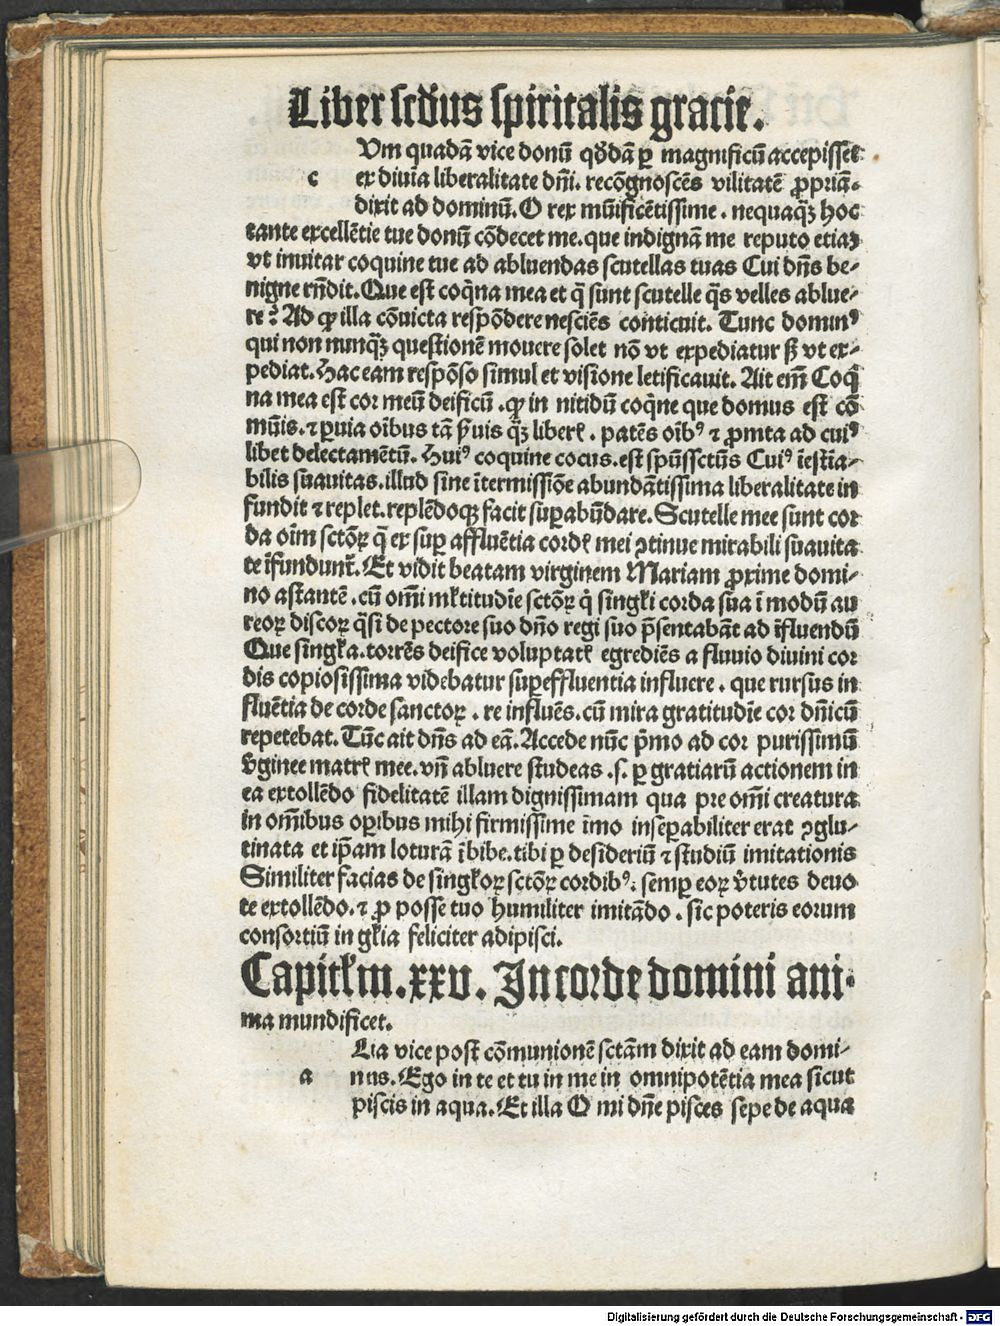 Liber scd̄us spiritalis gracie.
Vm quadā vice donū qd̄dā ꝑ magnificū accepisset
c ex diuīa liberalitate dn̄i. recōgnoscēs vilitatē ꝓpriā.
dixit ad dominū. O rex mūificētissime. nequaqꝫ hoc
tante excellētie tue donū cōdecet me. que indignā me reputo etiaꝫ
vt inuitar coquine tue ad abluendas scutellas tuas Cui dn̄s be-
nigne rn̄dit. Que est coq̄na mea et q̄ sunt scutelle q̄s velles ablue-
re? Ad qꝫ illa cōuicta respōdere nesciēs conticuit. Tunc dominꝰ
qui non nunqꝫ questionē mouere solet nō vt expediatur sꝫ vt ex-
pediat. Hac eam respōso simul et visione letificauit. Ait em̄ Coq̄
na mea est cor meū deificū. qꝫ in nitidū coq̄ne que domus est cō
mūis. ⁊ ꝑuia oībus tā s̄uis qꝫ liberꝭ. patēs oībꝰ ⁊ ꝓmta ad cuiꝰ
libet delectamētū. Huiꝰ coquine cocus. est spūssctūs Cuiꝰ īestīa-
bilis suauitas. illud sine ītermissiōe abundātissima liberalitate in
fundit ⁊ replet. replēdoqꝫ facit suꝑabūdare. Scutelle mee sunt cor
da oīm sctōꝝ q̄ ex suꝑ affluētia cordꝭ mei ꝯtinue mirabili suauita
te īfundunt̄. Et vidit beatam virginem Mariam ꝓxime domi-
no astantē. cū om̄i mƚtitudīe sctōꝝ q̄ singƚi corda sua ī modū au
reoꝝ discoꝝ q̄si de pectore suo dn̄o regi suo p̄sentabāt ad īfluendū
Que singƚa. torrēs deifice voluptatꝭ egrediēs a fluuio diuini cor
dis copiosissima videbatur suꝑeffluentia influere. que rursus in
fluētia de corde sanctoꝝ. re influēs. cū mira gratitudīe cor dn̄icū
repetebat. Tūc ait dn̄s ad eā. Accede nūc p̄mo ad cor purissimū
v̄ginee matrꝭ mee. vn̄ abluere studeas .s. ꝑ gratiarū actionem in
ea extollēdo fidelitatē illam dignissimam qua pre om̄i creatura
in om̄ibus oꝑibus mihi firmissime īmo inseꝑabiliter erat ꝯglu-
tinata et ip̄am loturā ībibe. tibi ꝑ desideriū ⁊ studiū imitationis
Similiter facias de singƚoꝝ sctōꝝ cordibꝰ. semꝑ eoꝝ v̄tutes deuo
te extollēdo. ⁊ ꝓ posse tuo humiliter imitādo. sic poteris eorum
consortiū in gƚia feliciter adipisci.
Capitƚm. xxv. In corde domini ani-
ma mundificet.
Lia vice post cōmunionē sctām dixit ad eam domi-
a nus. Ego in te et tu in me in omnipotētia mea sicut
piscis in aqua. Et illa O mi dn̄e pisces sepe de aqua
Digitalisierung gefördert durch die Deutsche Forschungsgemeinschaft - DFG